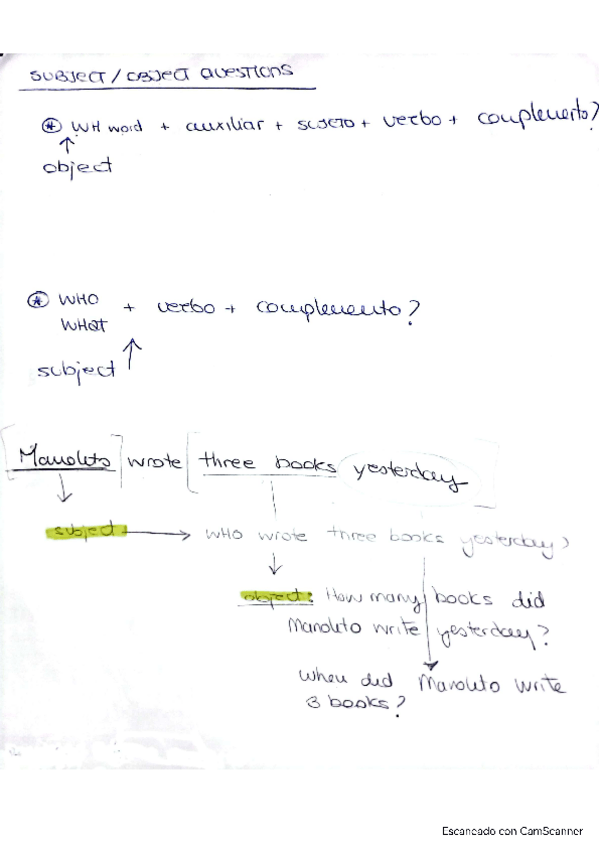 SUBJECT / OBJECT QUESTIONS
* WH word + auxiliar + sujeto + verbo + complemento?
↑
object
* WHO
WHAT + verbo + complemento?
subject ↑
[Manolito] wrote [three books yesterday]
↓
subject → WHO wrote three books yesterday?
↓
object: How many books did
Manolito write yesterday?
when did Manolito write
3 books?
Escaneado con CamScanner